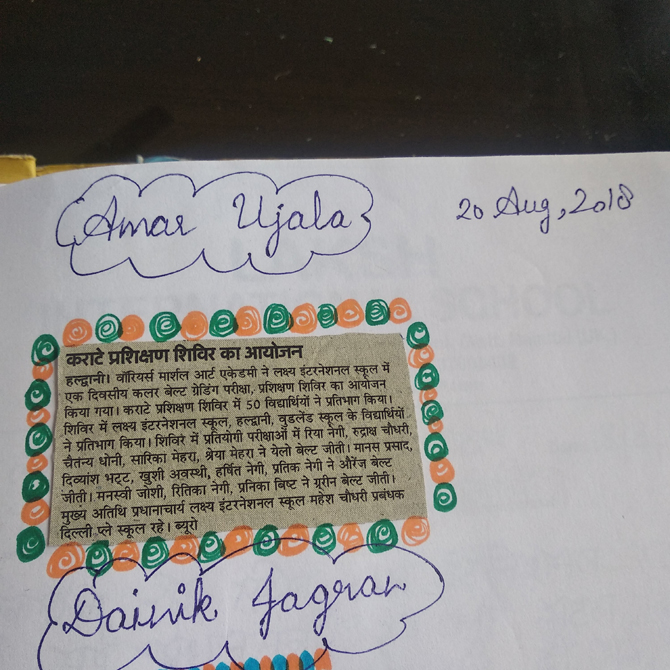 Amar Ujala
20 Aug, 2018
कराटे प्रशिक्षण शिविर का आयोजन
हल्द्वानी। वॉरियर्स मार्शल आर्ट एकेडमी ने लक्ष्य इंटरनेशनल स्कूल में
एक दिवसीय कलर बेल्ट ग्रेडिंग परीक्षा, प्रशिक्षण शिविर का आयोजन
किया गया। कराटे प्रशिक्षण शिविर में 50 विद्यार्थियों ने प्रतिभाग किया।
शिविर में लक्ष्य इंटरनेशनल स्कूल, हल्द्वानी, वुडलेंड स्कूल के विद्यार्थियों
ने प्रतिभाग किया। शिविर में प्रतियोगी परीक्षाओं में रिया नेगी, रुद्राक्ष चौधरी,
चैतन्य धोनी, सारिका मेहरा, श्रेया मेहरा ने येलो बेल्ट जीती। मानस प्रसाद,
दिव्यांश भट्ट, खुशी अवस्थी, हर्षित नेगी, प्रतिक नेगी ने औरेंज बेल्ट
जीती। मनस्वी जोशी, रितिका नेगी, प्रनिका बिष्ट ने ग्रीन बेल्ट जीती।
मुख्य अतिथि प्रधानाचार्य लक्ष्य इंटरनेशनल स्कूल महेश चौधरी प्रबंधक
दिल्ली प्ले स्कूल रहे। ब्यूरो
Dainik Jagran